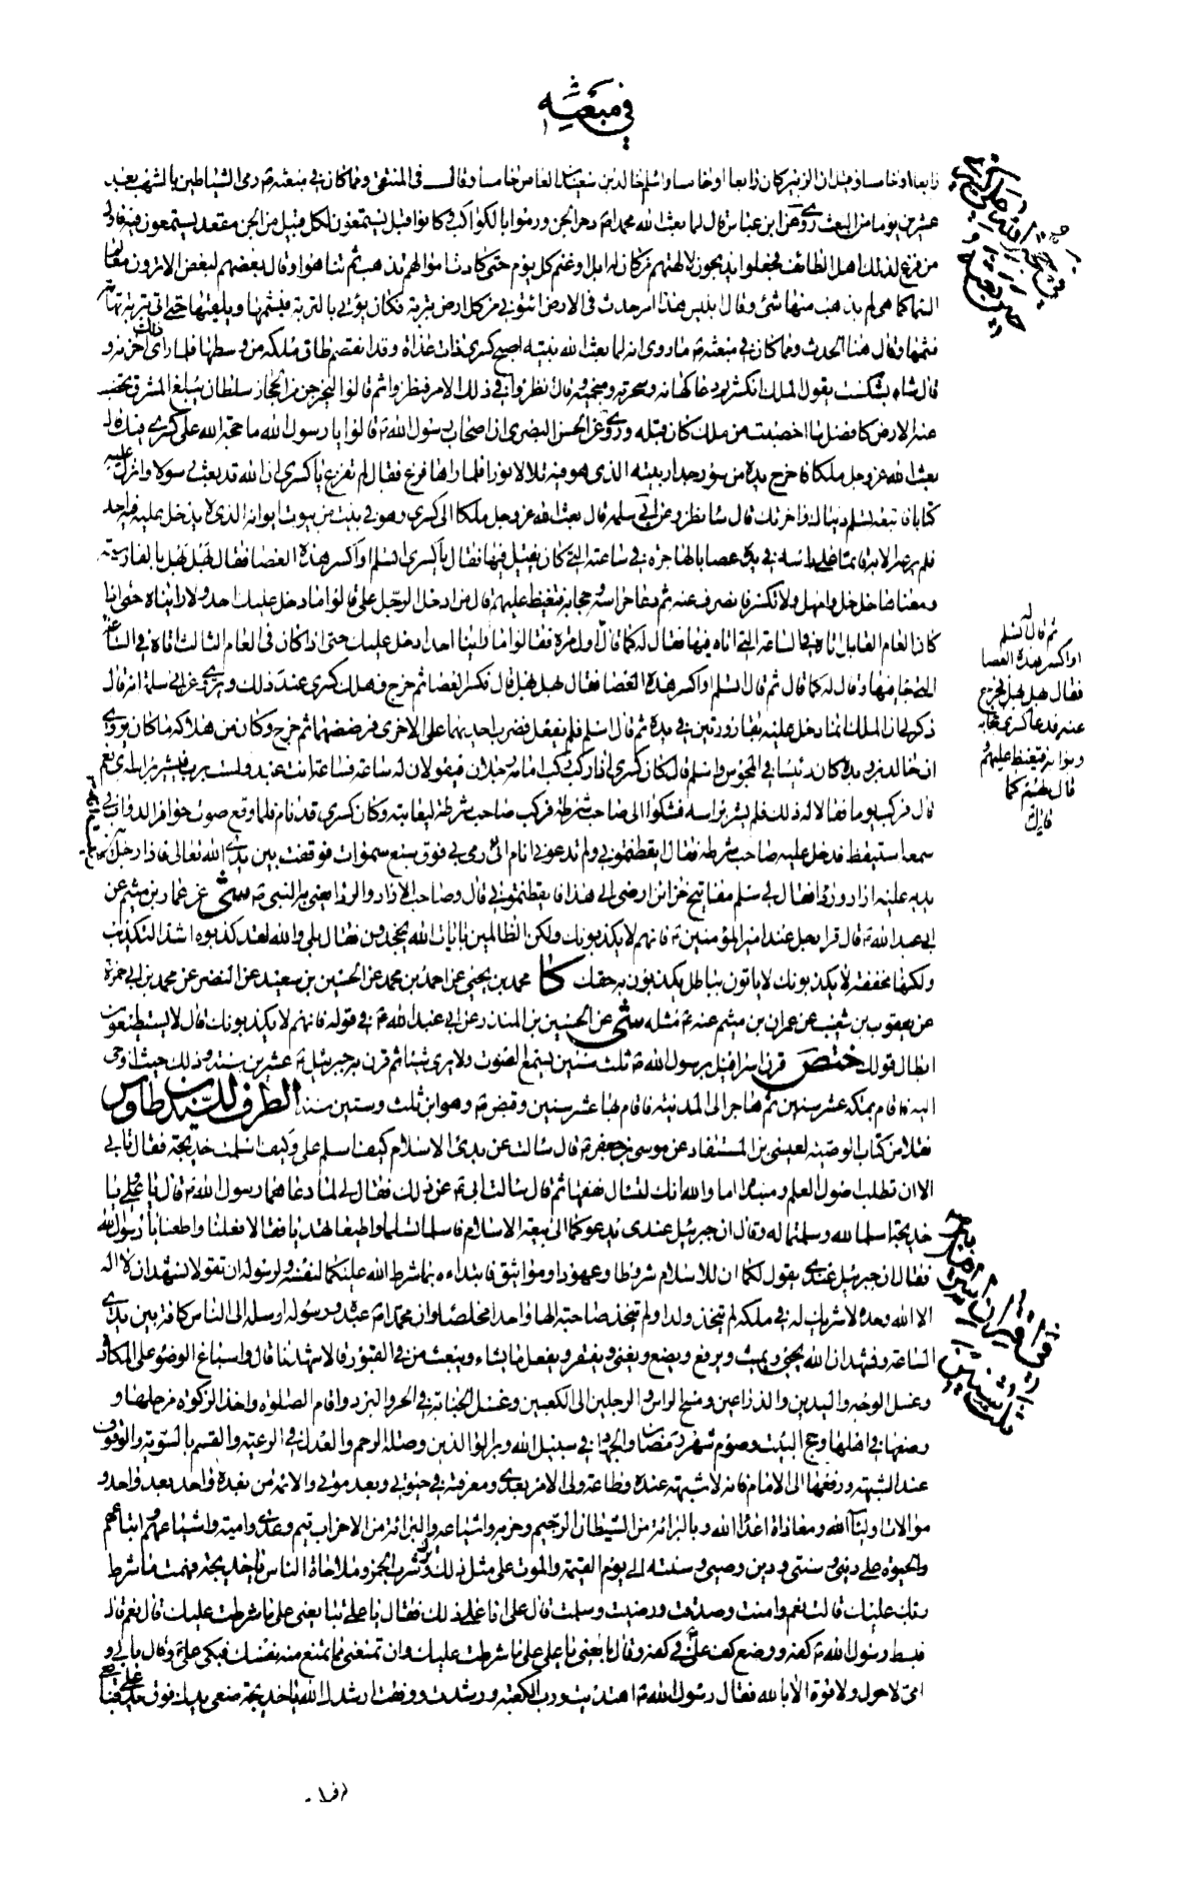 في مبعثه
رابعا او خامسا وقيل ان الزبير كان رابعا او خامسا واسلم خالد بن سعيد بن العاص خامسا وقال في المنتقى ومما كان في مبعثه رمي الشياطين بالشهب بعد
عشرين يوما من المبعث روي عن ابن عباس قال لما بعث الله محمدا دحر الجن ورموا بالكواكب وكانوا قبل يستمعون لكل قبيل من الجن مقعد يستمعون فيه فاول
من فزع لذلك اهل الطائف فجعلوا يذبحون لالهتهم من كان له ابل وغنم كل يوم حتى كادت اموالهم تذهب ثم تناهوا وقال بعضهم لبعض الا ترون معالم
السماء كما هي لم يذهب منها شئ وقال ابليس هذا امر حدث في الارض ائتوني من كل ارض بتربة فكان يؤتى بالتربة فيشمها ويلقيها حتى اتي بتربة تهامة
فشمها وقال هنا الحدث ومما كان في مبعثه ما روي انه لما بعث الله نبيه اصبح كسرى ذات غداة وقد انقصم طاق ملكه من وسطها فلما راى ذلك احزنه و
قال شاه بشكست يقول الملك انكسر ودعا كهانه وسحرته ومنجميه وقال انظروا في ذلك الامر فنظروا ثم قالوا ليخرجن من الحجاز سلطان يبلغ المشرق تخصب
عنه الارض كافضل ما اخصبت من ملك كان قبله وروي عن الحسن البصري ان اصحاب رسول الله قالوا يا رسول الله ما حجة الله على كسرى فيك قال
بعث الله عز وجل ملكا فاخرج يده من سور جدار بيته الذي هو فيه تلألأ نورا فلما راها فزع فقال لم تفزع يا كسرى ان الله قد بعث رسولا وانزل عليه
كتابا فاتبعه تسلم دنياك واخرتك قال سانظر وعن ابي سلمة قال بعث الله عز وجل ملكا الى كسرى وهو في بيت من بيوت ايوانه الذي لا يدخل عليه فيه احد
فلم يرعه الا به قائما على راسه في يده عصا بالهاجرة في ساعته التي كان يقيل فيها فقال يا كسرى اتسلم او اكسر هذه العصا فقال بهل بهل بالفارسية
ومعناه خل خل وامهل ولا تكسر فانصرف عنه ثم دعا حراسه وحجابه فتغيظ عليهم قال من ادخل الرجل علي قالوا ما دخل عليك احد ولا رايناه حتى اذا
كان العام القابل اتاه في الساعة التي اتاه فيها فقال له كما قال اول مرة فقالوا ما راينا احدا دخل عليك حتى اذا كان في العام الثالث اتاه في الساعة
التي جاء فيها وقال له كما قال ثم قال اتسلم او اكسر هذه العصا فقال بهل بهل قال فكسر العصا ثم خرج فهلك كسرى عند ذلك وروي عن ابي سلمة انه قال
ذكر لي ان الملك انما دخل عليه بقارورتين في يده ثم قال اسلم فلم يفعل فضرب احديهما على الاخرى فرضضهما ثم خرج وكان من هلاكه ما كان يروى
ان خالد بن كان رئيسا في المجوس واسلم قال كان كسرى اذا ركب ركب امامه رجلان فيقولان له ساعة فساعة انت عبد ولست برب فيشير براسه اي نعم
قال فركب يوما فقالا له ذلك فلم يشر براسه فشكوا الى صاحب شرطه فركب صاحب شرطه ليعاتبه وكان كسرى قد نام فلما وقع صوت حوافر الدواب في
سمعه استيقظ فدخل عليه صاحب شرطه فقال ايقظتموني ولم تدعوني انام اني رقي بي فوق سبع سموات فوقفت بين يدي الله تعالى فاذا رجل بين
يديه عليه ازار ورداء فقال لي سلم مفاتيح خزائن ارضي الى هذا فايقظتموني قال وصاحب الازار والرداء يعني به النبي شى عن عمار بن ميثم عن
ابي عبد الله قال قرا رجل عند امير المؤمنين فانهم لا يكذبونك ولكن الظالمين بايات الله يجحدون فقال بلى والله لقد كذبوه اشد التكذيب
ولكنها مخففة لا يكذبونك لا ياتون بباطل يكذبون به حقك كا محمد بن يحيى عن احمد بن محمد عن الحسين بن سعيد عن النضر عن محمد بن ابي حمزة
عن يعقوب بن شعيب عن عمران بن ميثم عنه مثله شى عن الحسين بن المنذر عن ابي عبد الله في قوله فانهم لا يكذبونك قال لا يستطيعون
ابطال قولك ختص قرن اسرافيل برسول الله ثلث سنين يسمع الصوت ولا يرى شيئا ثم قرن به جبرئيل عشرين سنة وذلك حيث اوحي
اليه فاقام بمكة عشر سنين ثم هاجر الى المدينة فاقام بها عشر سنين وقبض وهو ابن ثلث وستين سنة الطرف للسيد بن طاوس
نقلا من كتاب الوصية لعيسى بن المستفاد عن موسى بن جعفر قال سالت عن بدئ الاسلام كيف اسلم علي وكيف اسلمت خديجة فقال تابى
الا ان تطلب اصول العلم ومبتداه اما والله انك لتسال تفقها ثم قال سالت ابي عن ذلك فقال لي لما دعاهما رسول الله قال يا علي ويا
خديجة اسلمتما لله وسلمتما له وقال ان جبرئيل عندي يدعوكما الى بيعة الاسلام فاسلما تسلما واطيعا تهديا فقالا فعلنا واطعنا يا رسول الله
فقال ان جبرئيل عندي يقول لكما ان للاسلام شروطا وعهودا ومواثيق فابتداءه بما شرط الله عليكما لنفسه ولرسوله ان تقولا نشهد ان لا اله
الا الله وحده لا شريك له في ملكه لم يتخذ ولدا ولم يتخذ صاحبة الها واحدا مخلصا وان محمدا عبده ورسوله ارسله الى الناس كافة بين يدي
الساعة ونشهد ان الله يحيي ويميت ويرفع ويضع ويغني ويفقر ويفعل ما يشاء ويبعث من في القبور قالا شهدنا قال واسباغ الوضوء على المكاره
وغسل الوجه واليدين والذراعين ومسح الراس والرجلين الى الكعبين وغسل الجنابة في الحر والبرد واقام الصلوة واخذ الزكوة من حلها و
وضعها في اهلها وحج البيت وصوم شهر رمضان والجهاد في سبيل الله وبر الوالدين وصلة الرحم والعدل في الرعية والقسم بالسوية والوقوف
عند الشبهة ورفعها الى الامام فانه لا شبهة عنده وطاعة ولي الامر بعدي ومعرفته في حيوتي وبعد موتي والائمة من بعده واحد بعد واحد و
موالاة اولياء الله ومعاداة اعداء الله والبرائة من الشيطان الرجيم وحزبه واشياعه والبرائة من الاحزاب تيم وعدي وامية واشياعهم واتباعهم
والحيوة على ديني وسنتي ودين وصيي وسنته الى يوم القيمة والموت على مثل ذلك وترك شرب الخمر وملاحاة الناس يا خديجة فهمت ما شرط
ربك عليك قالت نعم وامنت وصدقت ورضيت وسلمت قال علي وانا على ذلك فقال يا علي تبايعني على ما شرطت عليك قال نعم قال
فبسط رسول الله كفه ووضع كف علي في كفه وقال بايعني يا علي على ما شرطت عليك وان تمنعني مما تمنع منه نفسك فبكى علي وقال بابي و
امي لا حول ولا قوة الا بالله فقال رسول الله اهتديت ورب الكعبة ورشدت ووفقت ارشدك الله يا خديجة ضعي يدك فوق يد علي فبايعي
ثم قال له اتسلم
او اكسر هذه العصا
فقال بهل بهل فخرج
عنه فدعا كسرى حجابه
وبوابه فتغيظ عليهم و
قال لهم كما
قال
ثلث سنين